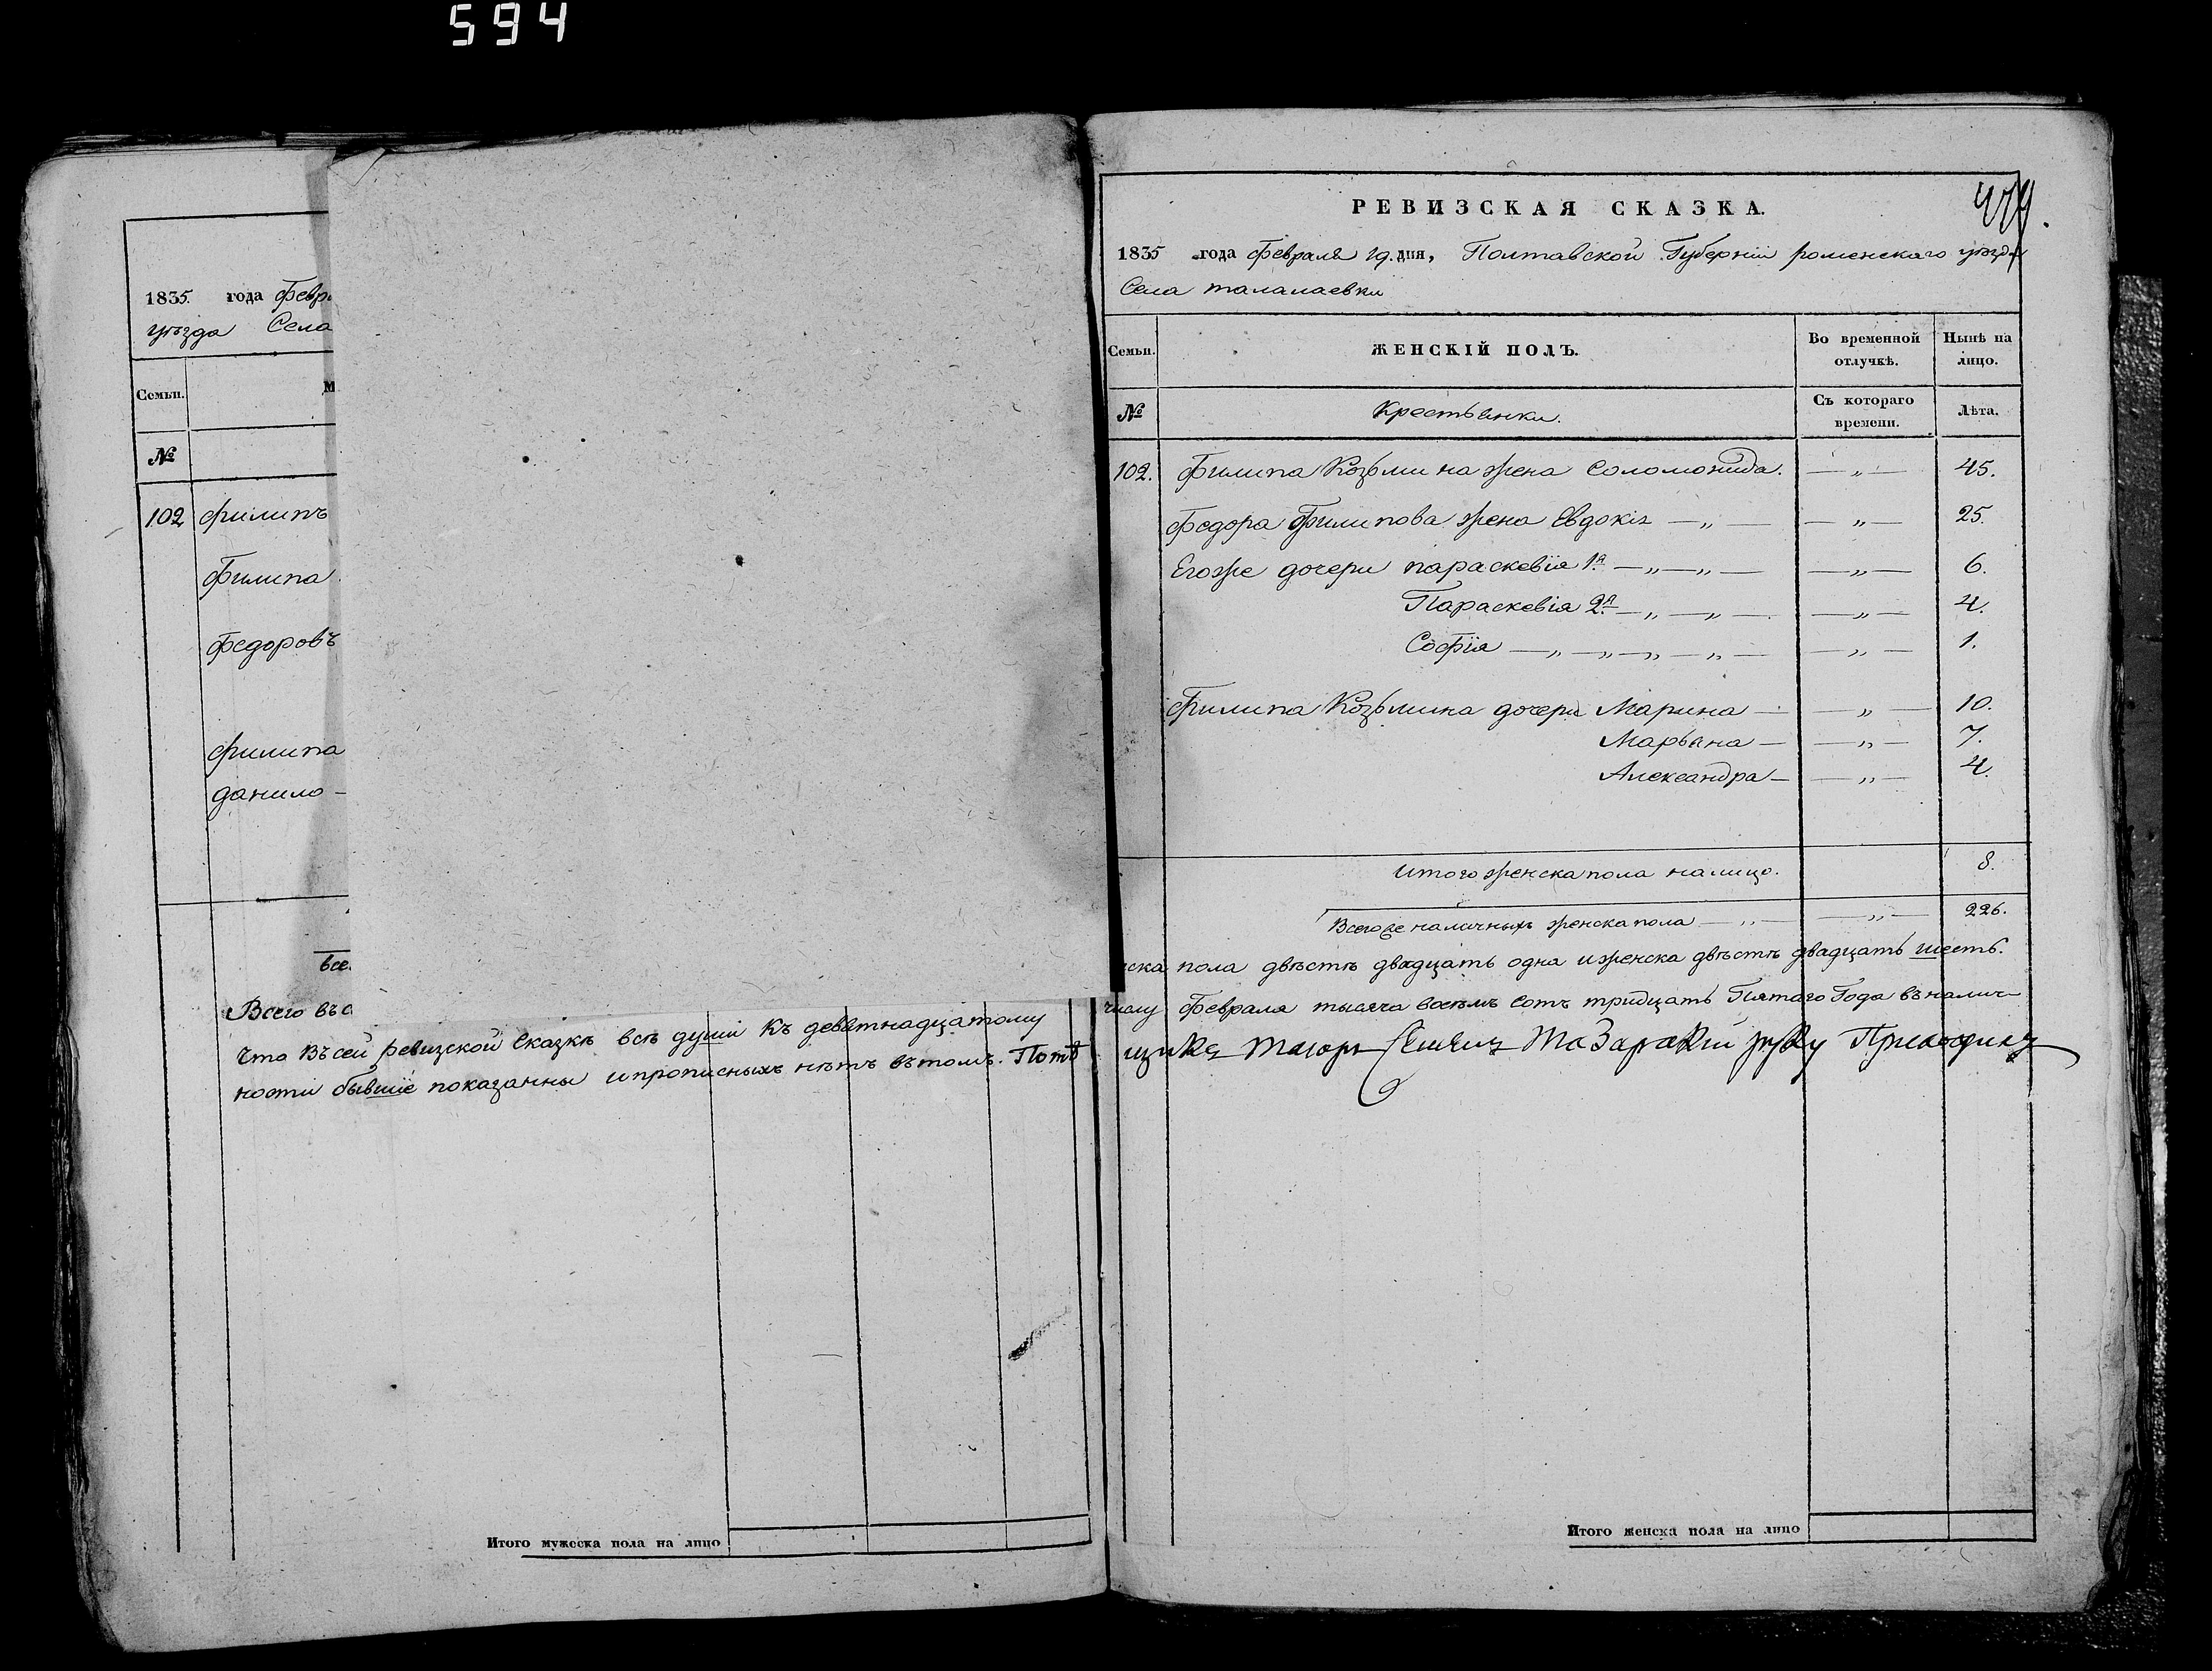 594
1835. года Февр
уѣзда Села
Семьи.
М
№
102 филипъ
Филипа
Федоровъ
филипа
данило —
все.
Всего въ с
что Въ сей ревизской Сказкѣ всѣ души Къ девятнадцатому
ности бывшіе показанны и прописныхъ нѣтъ въ томъ.
Итого мужеска пола на лицо
479.
РЕВИЗСКАЯ СКАЗКА.
1835 года Февраля 19. дня, Полтавской Губерніи роменскаго уѣзда
Села талалаевки
Семьи. ЖЕНСКІЙ ПОЛЪ. Во временной отлучкѣ. Нынѣ на лицо.
№ Крестьянки. Съ котораго времени. Лѣта.
102. Филипа Козьмина жена Соломонида. — „ — 45.
Федора Филипова жена Евдокія — „ — — „ — 25.
Егоже дочери параскевія 1я — „ — „ — — „ — 6.
Параскевія 2я — „ — „ — — „ — 4.
Софія — „ — „ — „ — „ — — „ — 1.
Филипа Козьмина дочери Марина — — „ — 10.
Марьяна — — „ — 7.
Александра — — „ — 4.
Итого женска пола на лицо. 8.
Всего же наличныхъ женска пола — „ — „ — 226.
ска пола двѣстѣ двадцать одна и женска двѣстѣ двадцать шесть.
числу Февраля тысяча восемъ Сотъ тридцать Пятаго Года въ налич-
руку
Итого женска пола на лицо